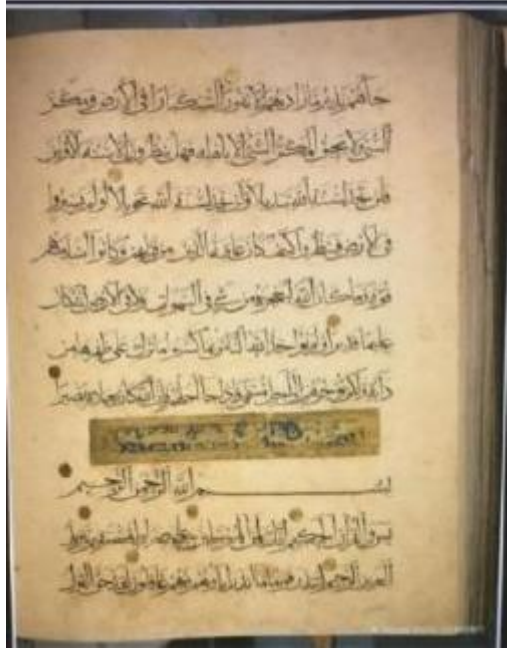 جاءهم نذير ما زادهم إلا نفورا استكبارا في الأرض ومكر
السيئ ولا يحيق المكر السيئ إلا بأهله فهل ينظرون إلا سنة الأولين
فلن تجد لسنة الله تبديلا ولن تجد لسنة الله تحويلا أولم يسيروا
في الأرض فينظروا كيف كان عاقبة الذين من قبلهم وكانوا أشد منهم
قوة وما كان الله ليعجزه من شيء في السموات ولا في الأرض إنه كان
عليما قديرا ولو يؤاخذ الله الناس بما كسبوا ما ترك على ظهرها من
دابة ولكن يؤخرهم إلى أجل مسمى فإذا جاء أجلهم فإن الله كان بعباده بصيرا
بسم الله الرحمن الرحيم
يس والقرآن الحكيم إنك لمن المرسلين على صراط مستقيم تنزيل
العزيز الرحيم لتنذر قوما ما أنذر آباؤهم فهم غافلون لقد حق القول